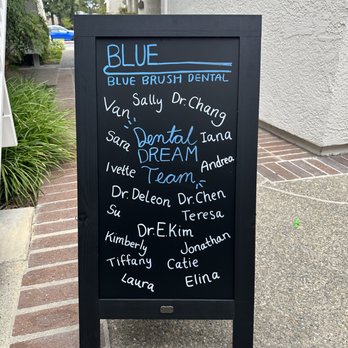 BLUE
BLUE BRUSH DENTAL
Van Sally Dr. Chang
Sara Dental Iana
DREAM
Ivette Team Andrea
Dr. Deleon Dr. Chen
Su Teresa
Dr. E. Kim
Kimberly Jonathan
Tiffany Catie
Laura Elina